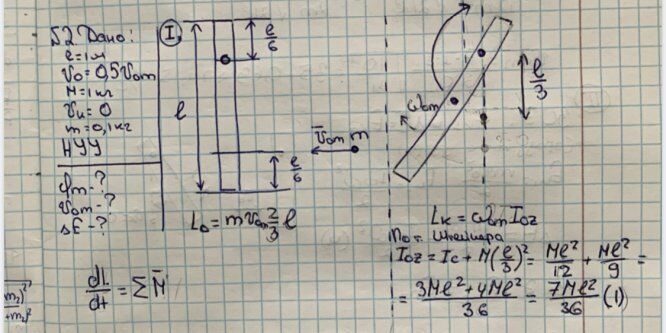 №2 Дано:
l=1м
V₀=0,5V₀m
M=1кг
Vк=0
m=0,1кг
НУУ
φm-?
V₀m-?
ΔE-?
I
l/6
l
V̄₀m m
l/6
L₀ = mV₀m 2/3 l
dL̄/dt = ΣM̄
ω₀m
l/3
Lк = ω₀m I₀z
По = Штейнера
I₀z = Ic + M(l/3)² = Ml²/12 + Ml²/9 =
= 3Ml²+4Ml²/36 = 7Ml²/36 (1)